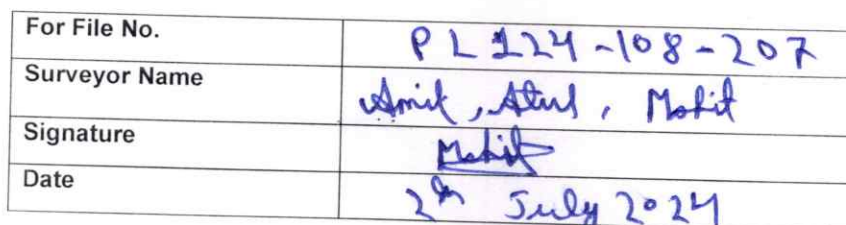 For File No. PL124-108-207
Surveyor Name Amit, Atul, Mohit
Signature Mohit
Date 2th July 2024